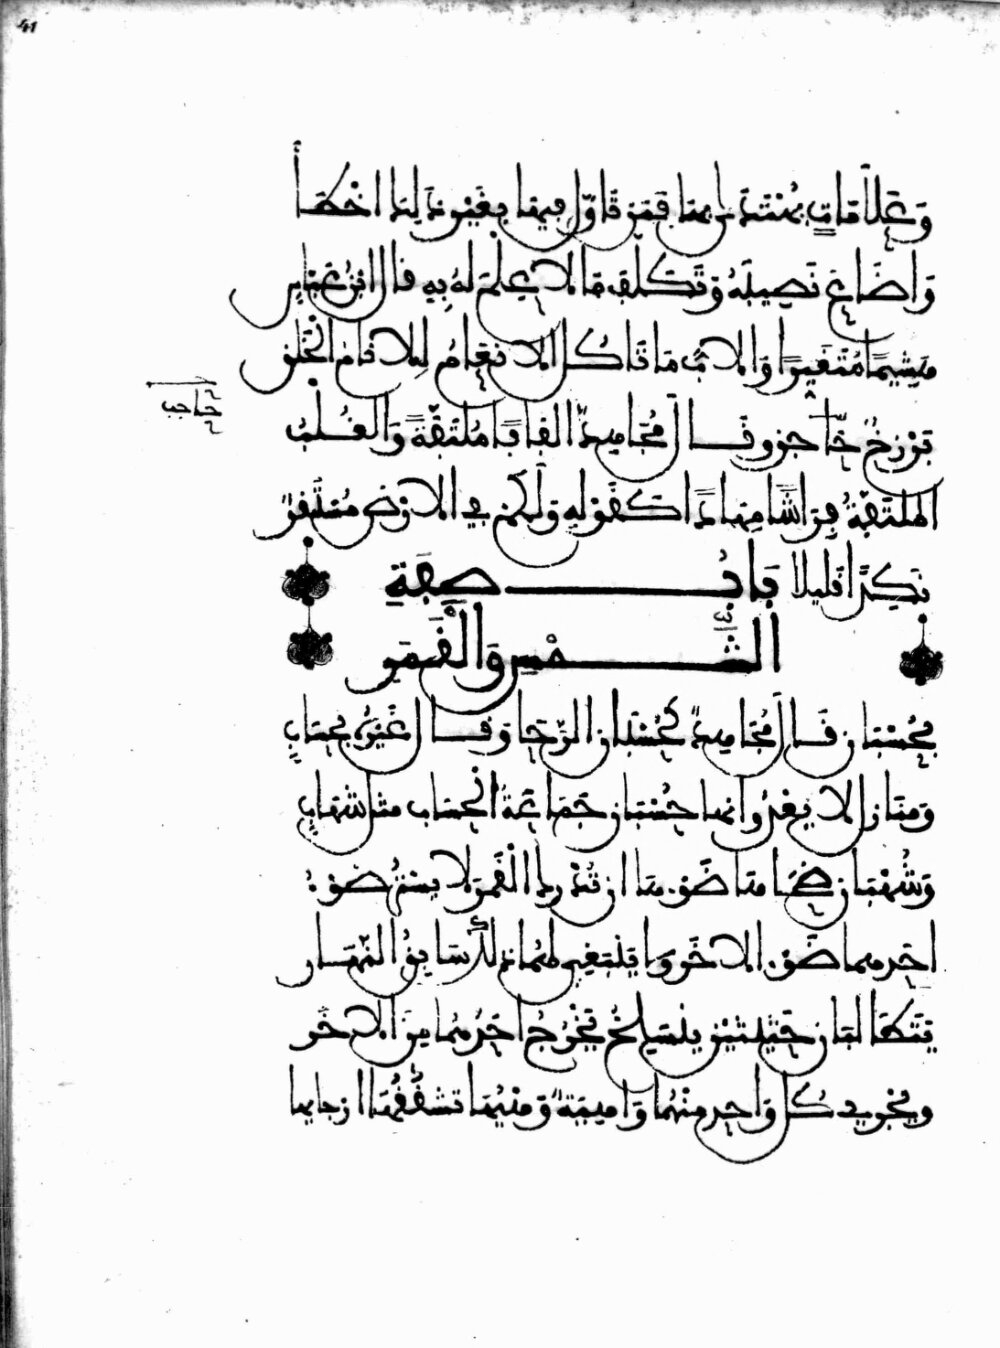 وَعَلَامَاتٍ يُهْتَدَى بها فَمَن تَأَوَّلَ فِيهَا بِغَيْرِ ذَلِكَ اخْطَأَ
وَاضَاعَ نَصِيبَهُ وَتَكَلَّفَ مَا لا عِلْمَ لَهُ بِهِ قال ابنُ عَبَّاسٍ
هَشِيمًا مُتَغَيِّرًا وَالابُّ مَا تَاكُلُ الانْعَامُ للانَامُ الخَلْقُ
بَرْزَخٌ حَاجزٌ وقَالَ مُجَاهِدٌ الفَافًا مُلْتَفَّةً وَالغُلْبُ
المُلْتَفَّةُ فِرَاشًا مِهَادًا كَقَوْلِهِ وَلَكُمْ فِي الارْضِ مُسْتَقَرٌّ
نَكِدًا قَلِيلا بَابُ صِفَةِ
الشَّمْسِ وَالْقَمَرِ
بِحُسْبَانٍ قَالَ مُجَاهِدٌ كَحُسْبَانِ الرَّحَا وَقَالَ غَيْرُهُ بِحِسَابٍ
وَمَنَازِلَ لا يَعْدُوَانِهَا حُسْبَان جَمَاعَةُ الحِسَاب مثل شهَابٍ
وَشُهْبَانٍ ضُحَاهَا ضَوْءهَا ان تُدْرِكَ الْقَمَرَ لا يَسْتُرُ ضَوْءُ
احَدِهِمَا ضَوْءَ الاخَرِ وَلا يَنْبَغِي لهُمَا ذلكَ سَابِقُ النَّهَارِ
يَتَطَالَبَانِ حَثِيثَيْنِ يَنْسَلِخُ يَخْرُجُ احَدُهُمَا مِنَ الاخَرِ
ويجْرِي كُلُّ وَاحِدٍ مِنْهُمَا وَاهِيَةٌ وَهْيُهَا تَشَقُّقُهَا ارجايها
حاجب
41